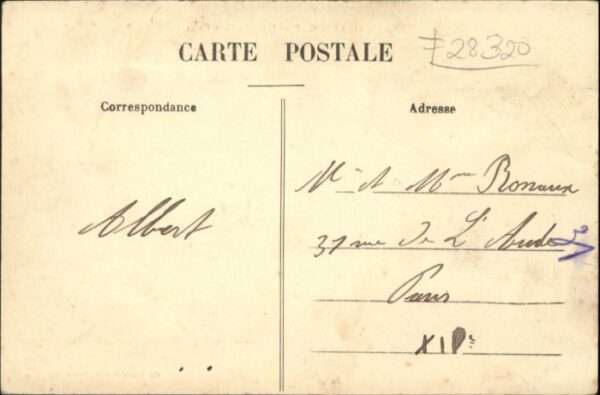 CARTE POSTALE
F28.320
Correspondance
Adresse
Mr et Mme
Albert
37 rue de L'Aude
Paris
XIVe